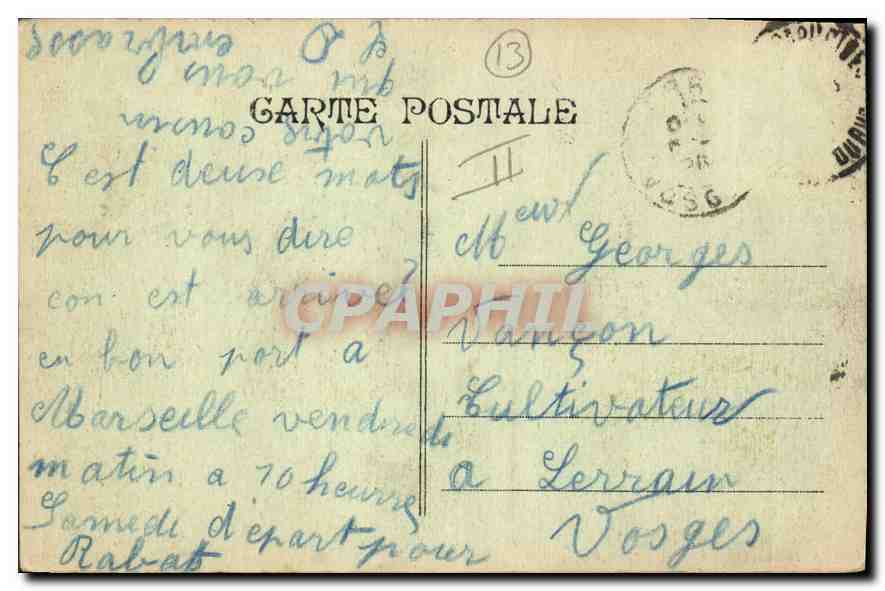 13
CARTE POSTALE
C'est deuse mots
pour vous dire
con est arrivé
en bon port a
Marseille vendredi
matin a 10 heurre
Samedi départ pour
Rabat
votre cousin
qui vous
embrasse
II
Meur Georges
Vançon
Cultivateur
a Lerrain
Vosges
CPAPHIL
VOSG